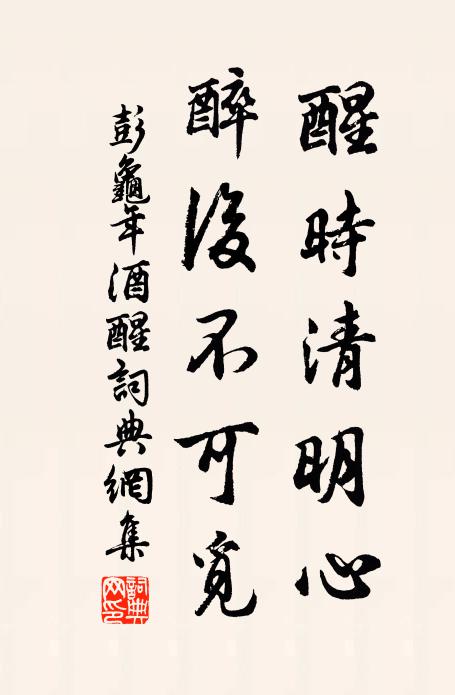 醒時清明心
醉後不可覓
彭龜年酒醒詞典網集
詞典网印